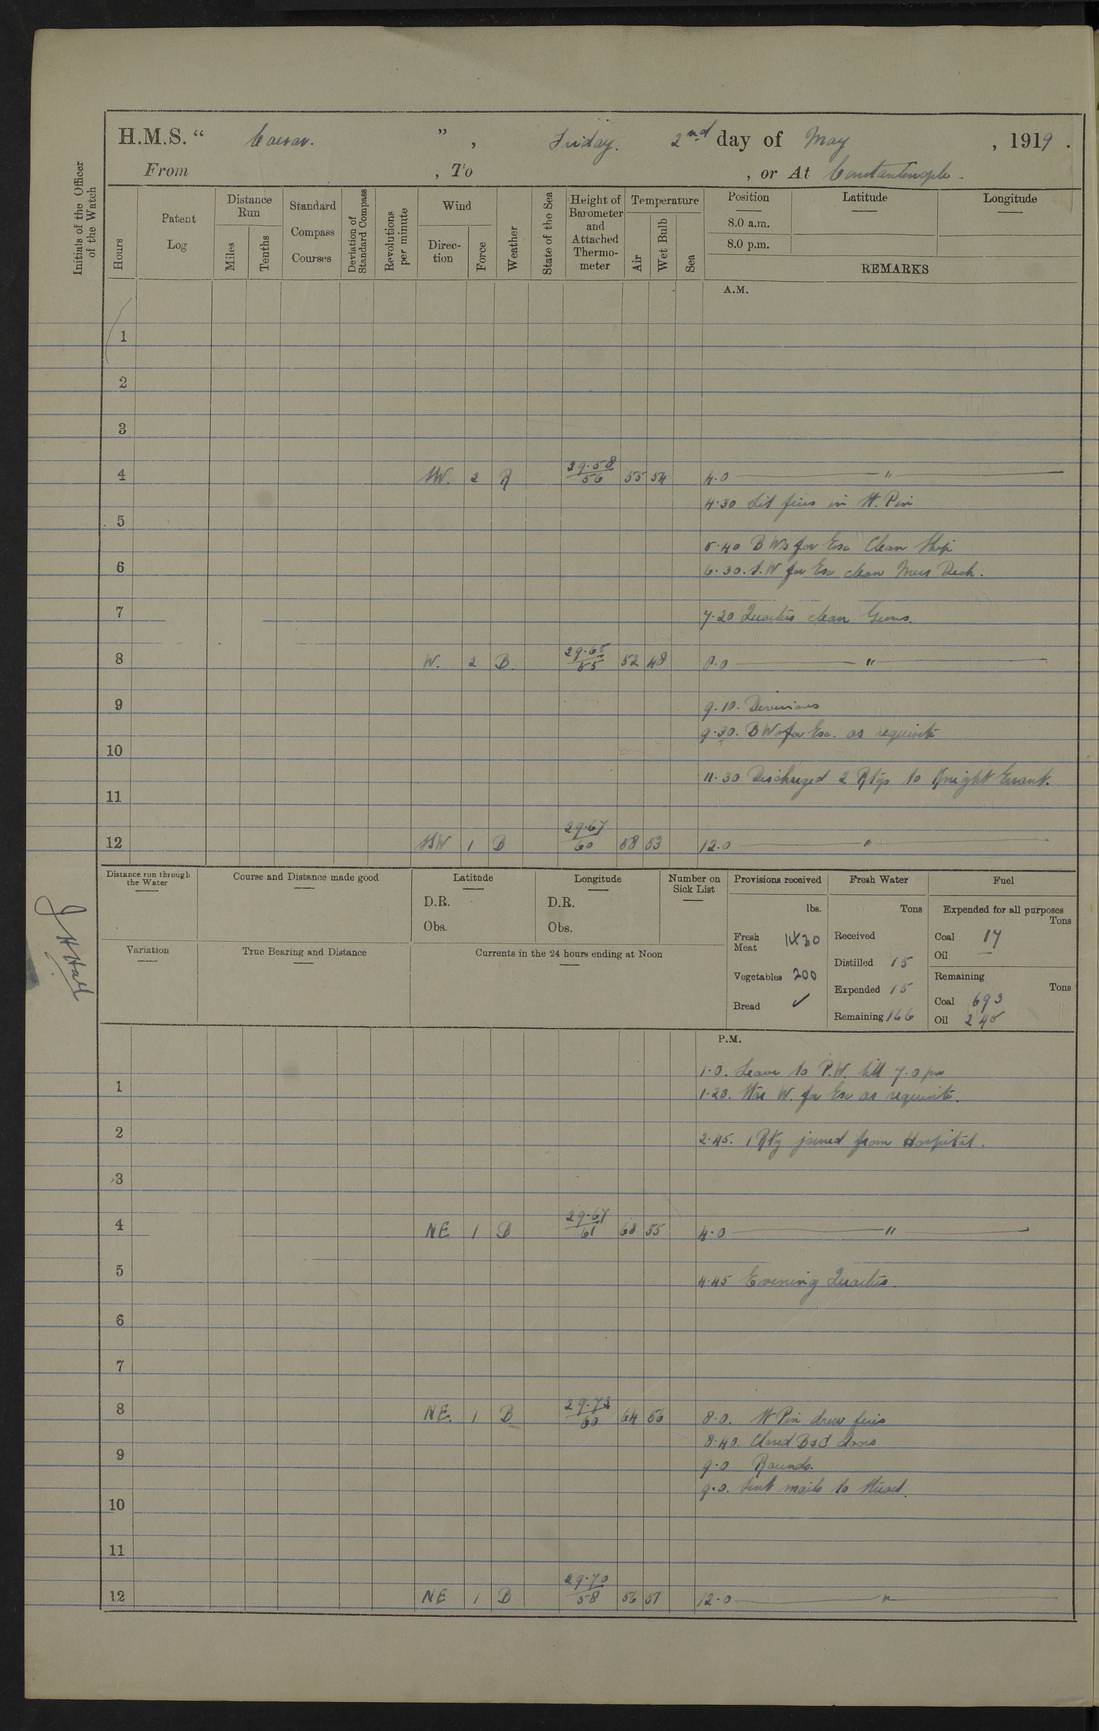 H.M.S. “ Caesar. ” , Friday. 2nd day of May , 1919 .
From , To , or At Constantinople.
Initials of the Officer of the Watch
Hours
Patent Log
Distance Run
Miles
Tenths
Standard Compass Courses
Deviation of Standard Compass
Revolutions per minute
Wind
Direc-tion
Force
Weather
State of the Sea
Height of Barometer and Attached Thermo-meter
Temperature
Air
Wet Bulb
Sea
Position Latitude Longitude
8.0 a.m.
8.0 p.m.
REMARKS
A.M.
1
2
3
4 SW. 2 R 29.58/56 55 54 4.0 "
4.30 Lit fires in W. Pin
5
5.40 B Ws for Exc Clean Ship
6 6.30. S.W for Exc clean Mess Deck.
7 7.20 Quarters clean Guns.
8 W. 2 B. 29.65/55 52 48 8.0 "
9 9.10. Divisions
9.30. B Ws for Exc. as requisite
10
11.30 Discharged 2 Rtgs to Knight Errant.
11
12 1 B 29.67/60 58 53 12.0 "
Distance run through the Water
Course and Distance made good
Latitude
D.R.
Obs.
Longitude
D.R.
Obs.
Number on Sick List
Provisions received
lbs.
Fresh Meat
Vegetables 200
Bread ✓
Fresh Water
Tons
Received
Distilled 15
Expended 15
Remaining 166
Fuel
Expended for all purposes
Tons
Coal 17
Oil —
Remaining
Tons
Coal 693
Oil 245
Variation
True Bearing and Distance
Currents in the 24 hours ending at Noon
J H Hall
P.M.
1.0. Leave to P.W. till 7.0 pm
1 1.20. W. for Exc as requisite.
2 2.45. 1 Rtg joined from Hospital.
3
4 NE 1 B 29.67/61 68 55 4.0 "
5 4.45 Evening Quarters.
6
7
8 NE. 1 B 29.72/60 64 56 8.0. W Pin drew fires
8.40. Closed B & S doors
9 9.0 Rounds.
9.0. Sent mails to
10
11
12 NE 1 B 29.70/58 56 51 12.0 "